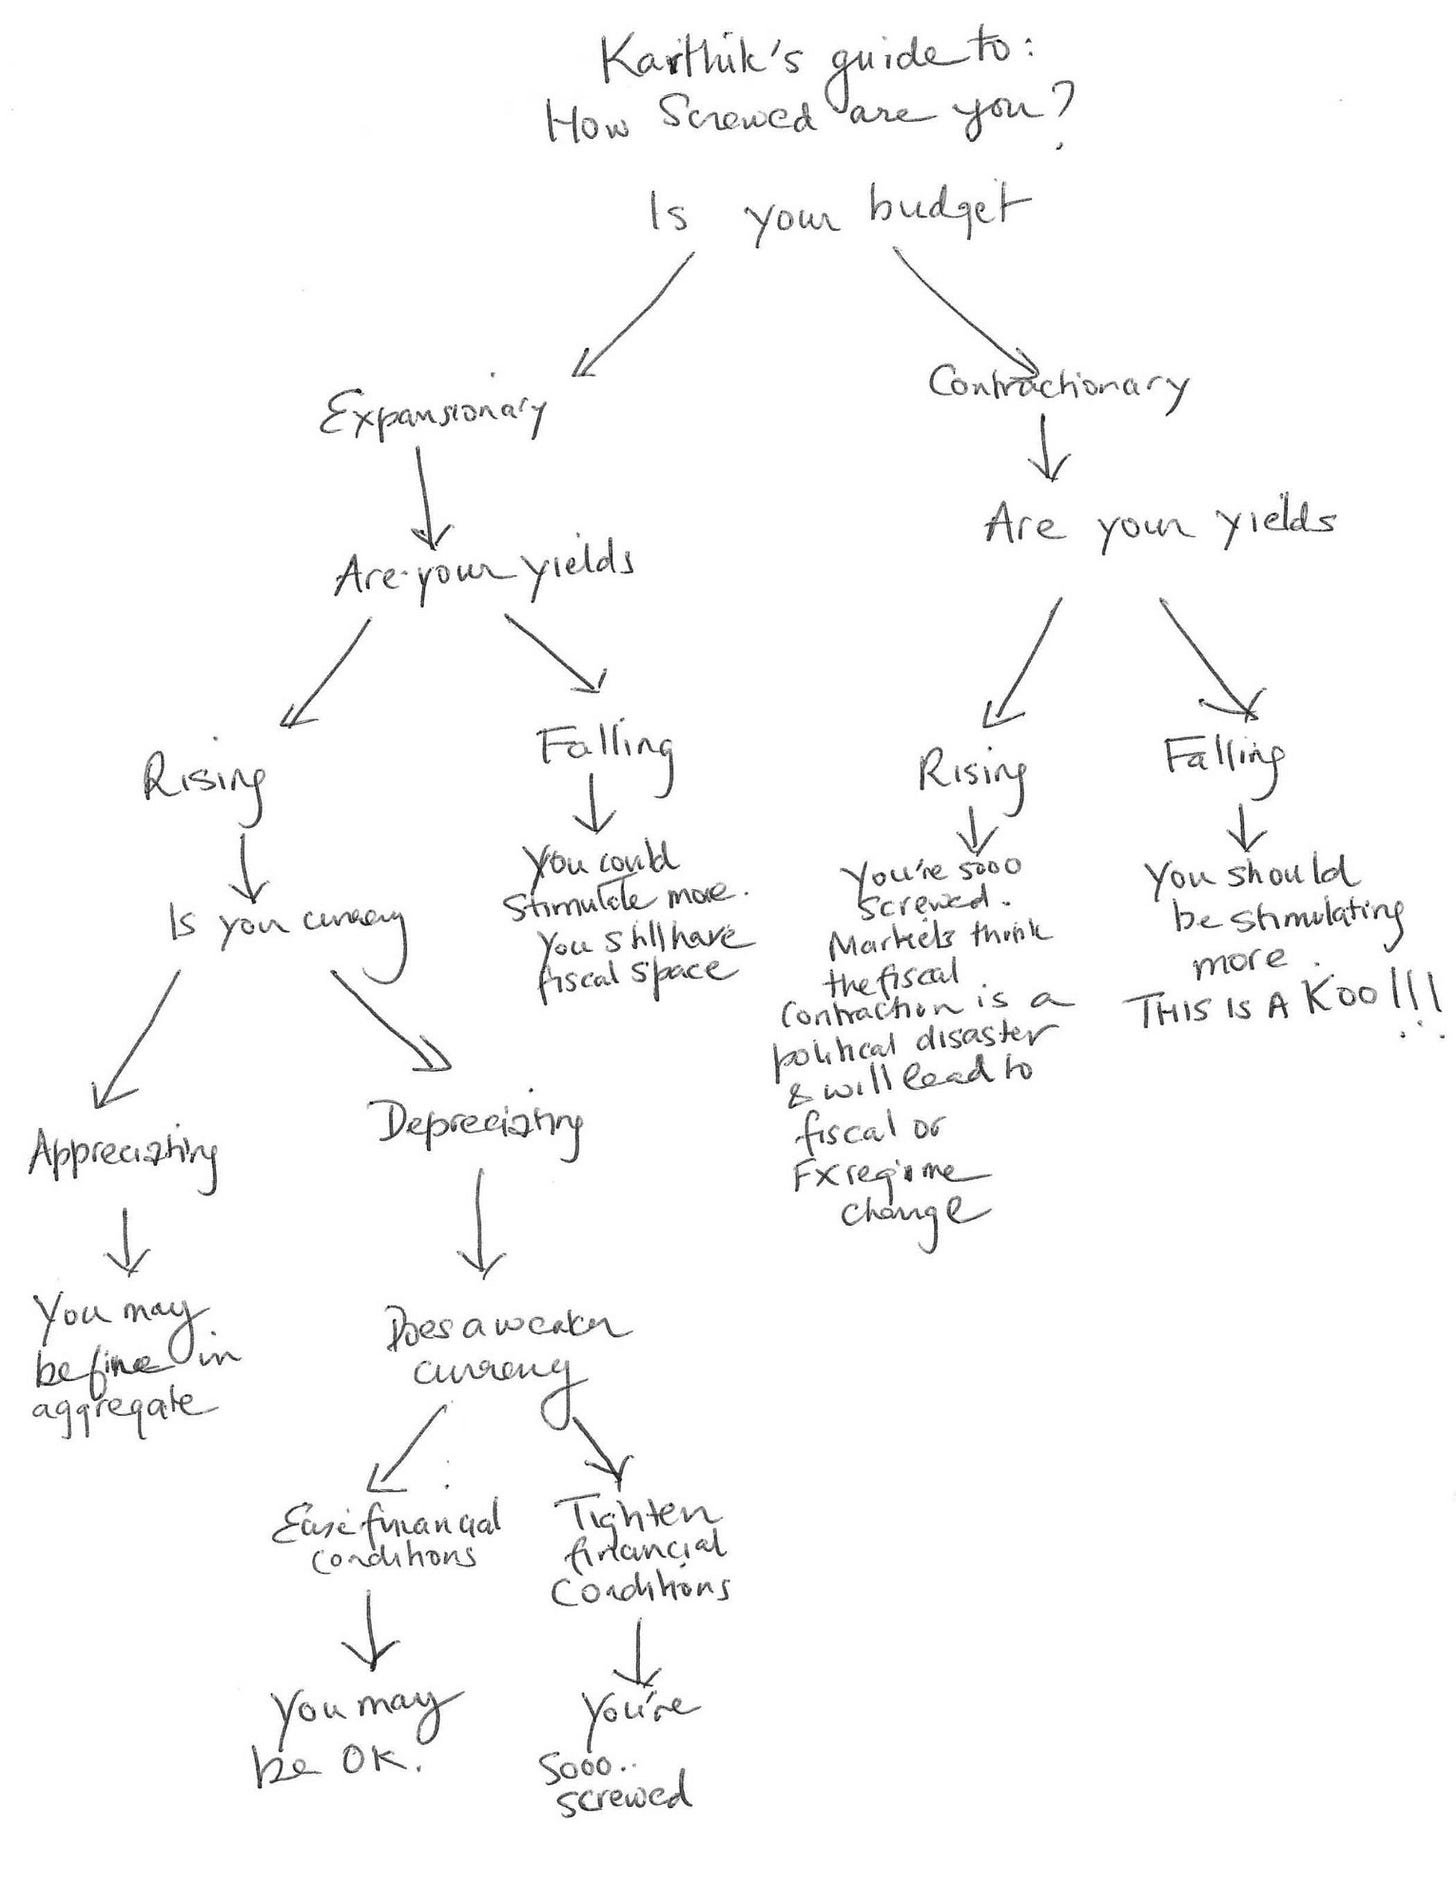 Karthik's guide to:
How Screwed are you?
Is your budget
Expansionary
Contractionary
Are your yields
Are your yields
Rising
Falling
Rising
Falling
Is your currency
You could
stimulate more.
You still have
fiscal space
You're sooo
screwed.
Markets think
the fiscal
contraction is a
political disaster
& will lead to
fiscal or
FX regime
change
You should
be stimulating
more.
THIS IS A KOO!!!
Appreciating
Depreciating
You may
be fine in
aggregate
Does a weaker
currency
Ease financial
conditions
Tighten
financial
Conditions
You may
be OK.
You're
Sooo..
screwed